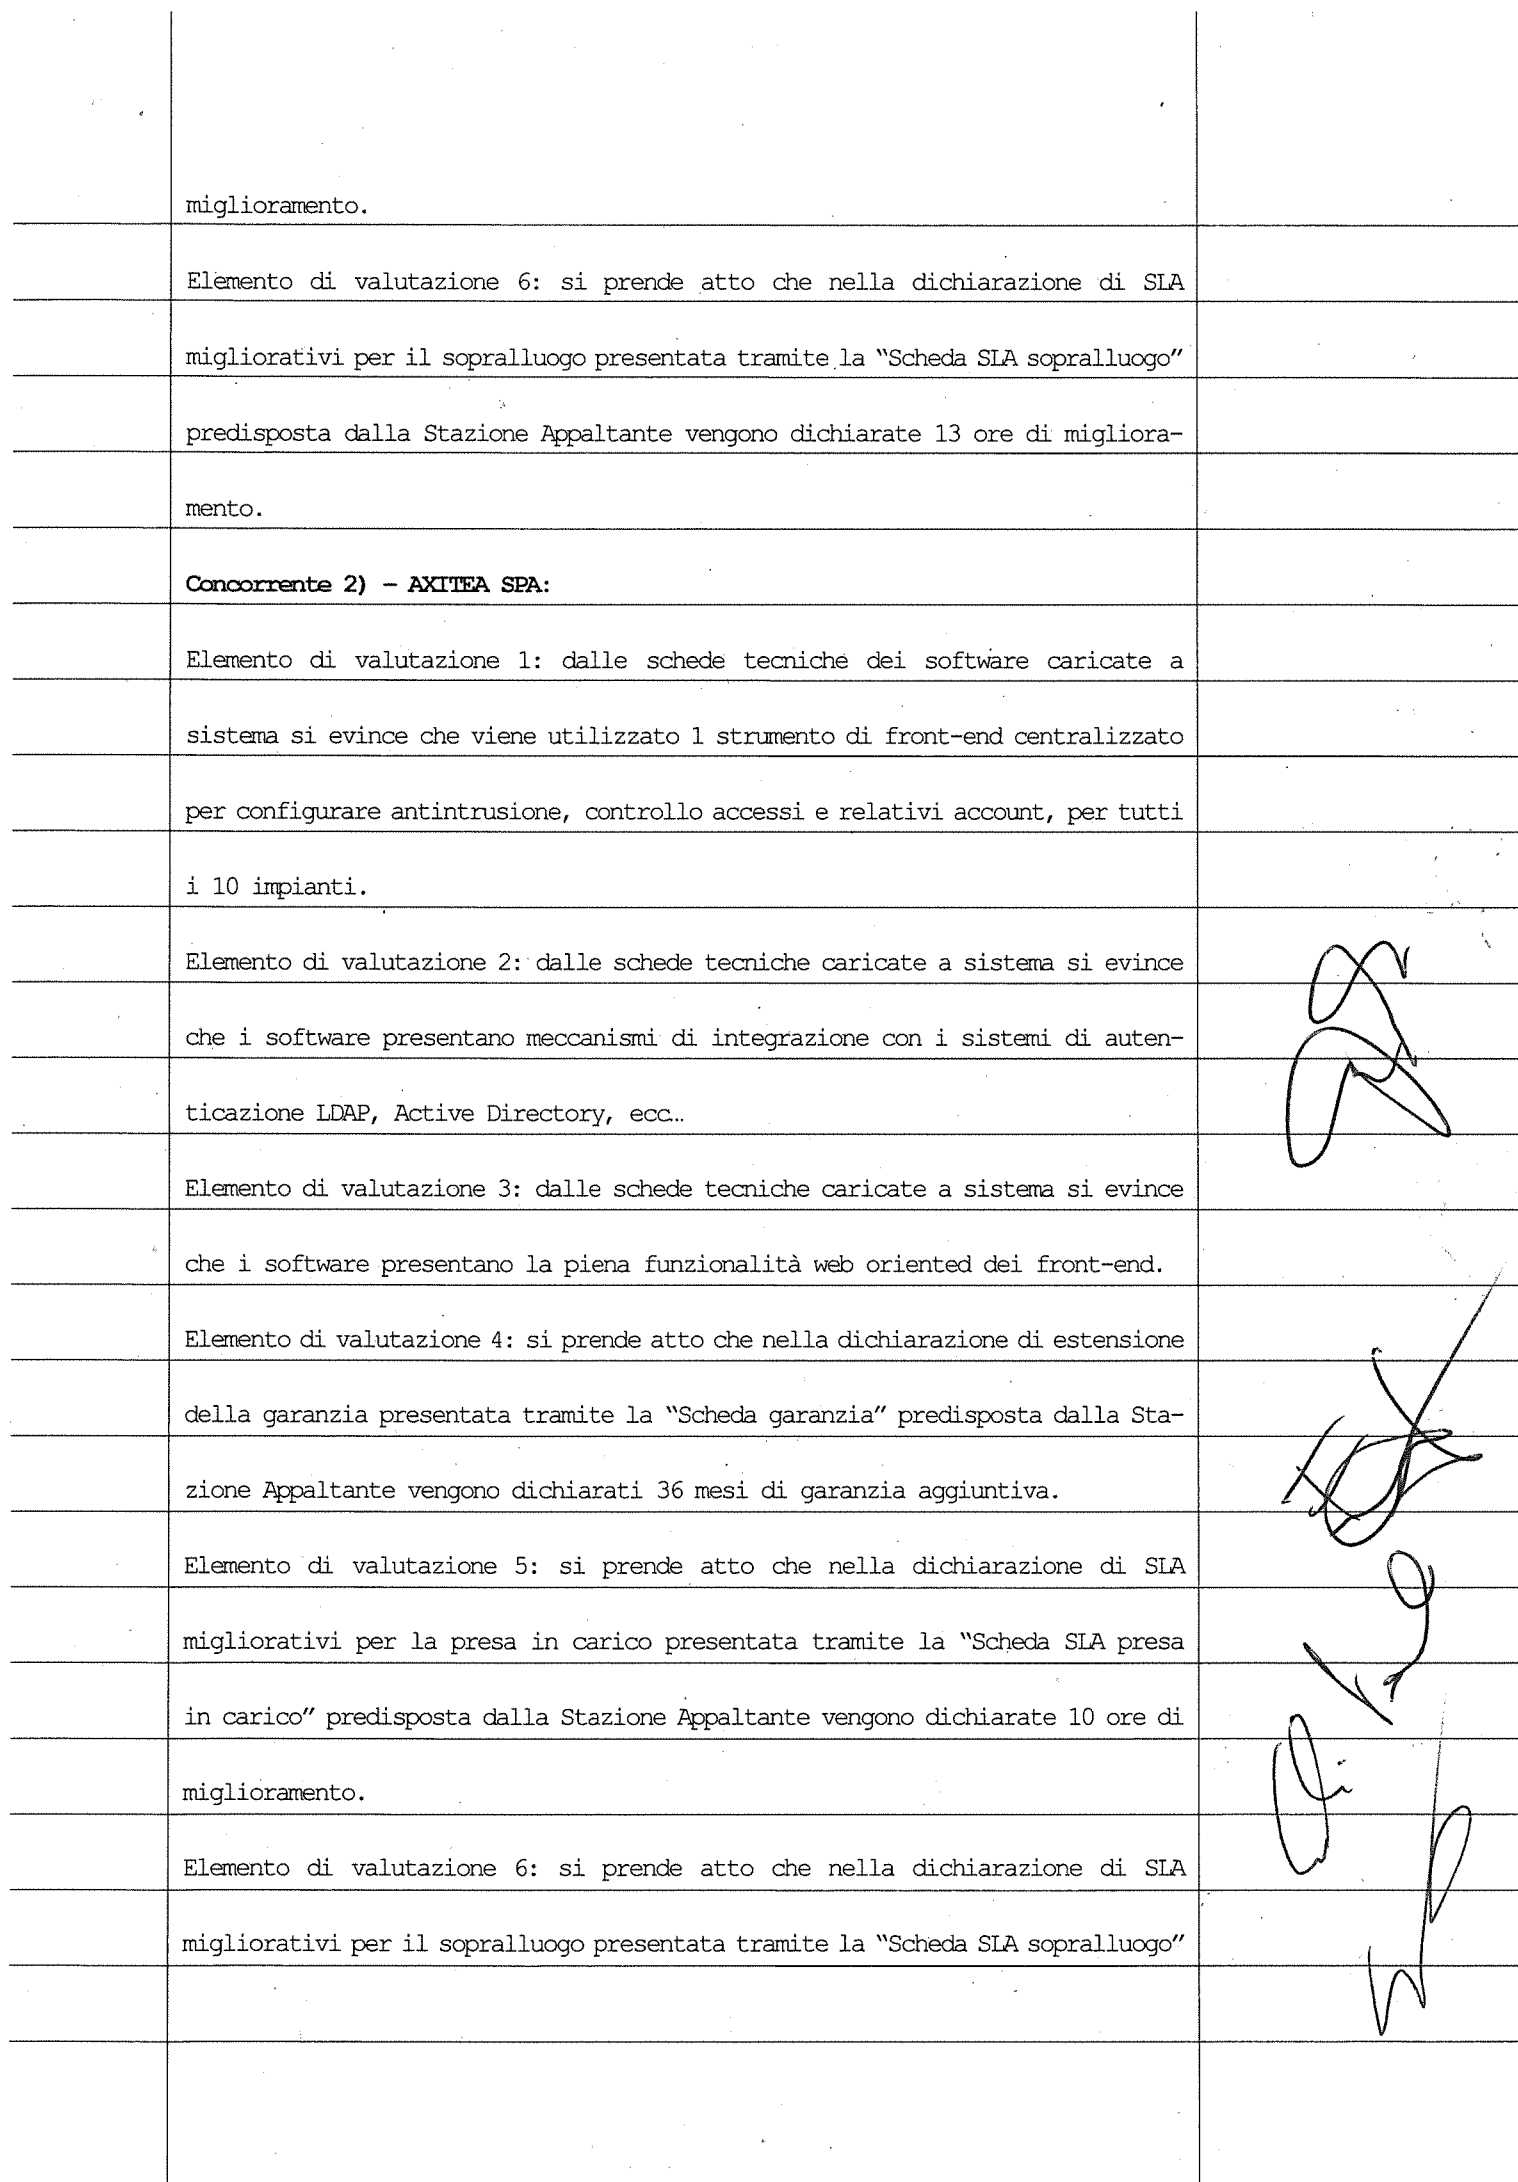 miglioramento.
Elemento di valutazione 6: si prende atto che nella dichiarazione di SLA
migliorativi per il sopralluogo presentata tramite la “Scheda SLA sopralluogo”
predisposta dalla Stazione Appaltante vengono dichiarate 13 ore di migliora-
mento.
Concorrente 2) – AXITEA SPA:
Elemento di valutazione 1: dalle schede tecniche dei software caricate a
sistema si evince che viene utilizzato 1 strumento di front-end centralizzato
per configurare antintrusione, controllo accessi e relativi account, per tutti
i 10 impianti.
Elemento di valutazione 2: dalle schede tecniche caricate a sistema si evince
che i software presentano meccanismi di integrazione con i sistemi di auten-
ticazione LDAP, Active Directory, ecc…
Elemento di valutazione 3: dalle schede tecniche caricate a sistema si evince
che i software presentano la piena funzionalità web oriented dei front-end.
Elemento di valutazione 4: si prende atto che nella dichiarazione di estensione
della garanzia presentata tramite la “Scheda garanzia” predisposta dalla Sta-
zione Appaltante vengono dichiarati 36 mesi di garanzia aggiuntiva.
Elemento di valutazione 5: si prende atto che nella dichiarazione di SLA
migliorativi per la presa in carico presentata tramite la “Scheda SLA presa
in carico” predisposta dalla Stazione Appaltante vengono dichiarate 10 ore di
miglioramento.
Elemento di valutazione 6: si prende atto che nella dichiarazione di SLA
migliorativi per il sopralluogo presentata tramite la “Scheda SLA sopralluogo”